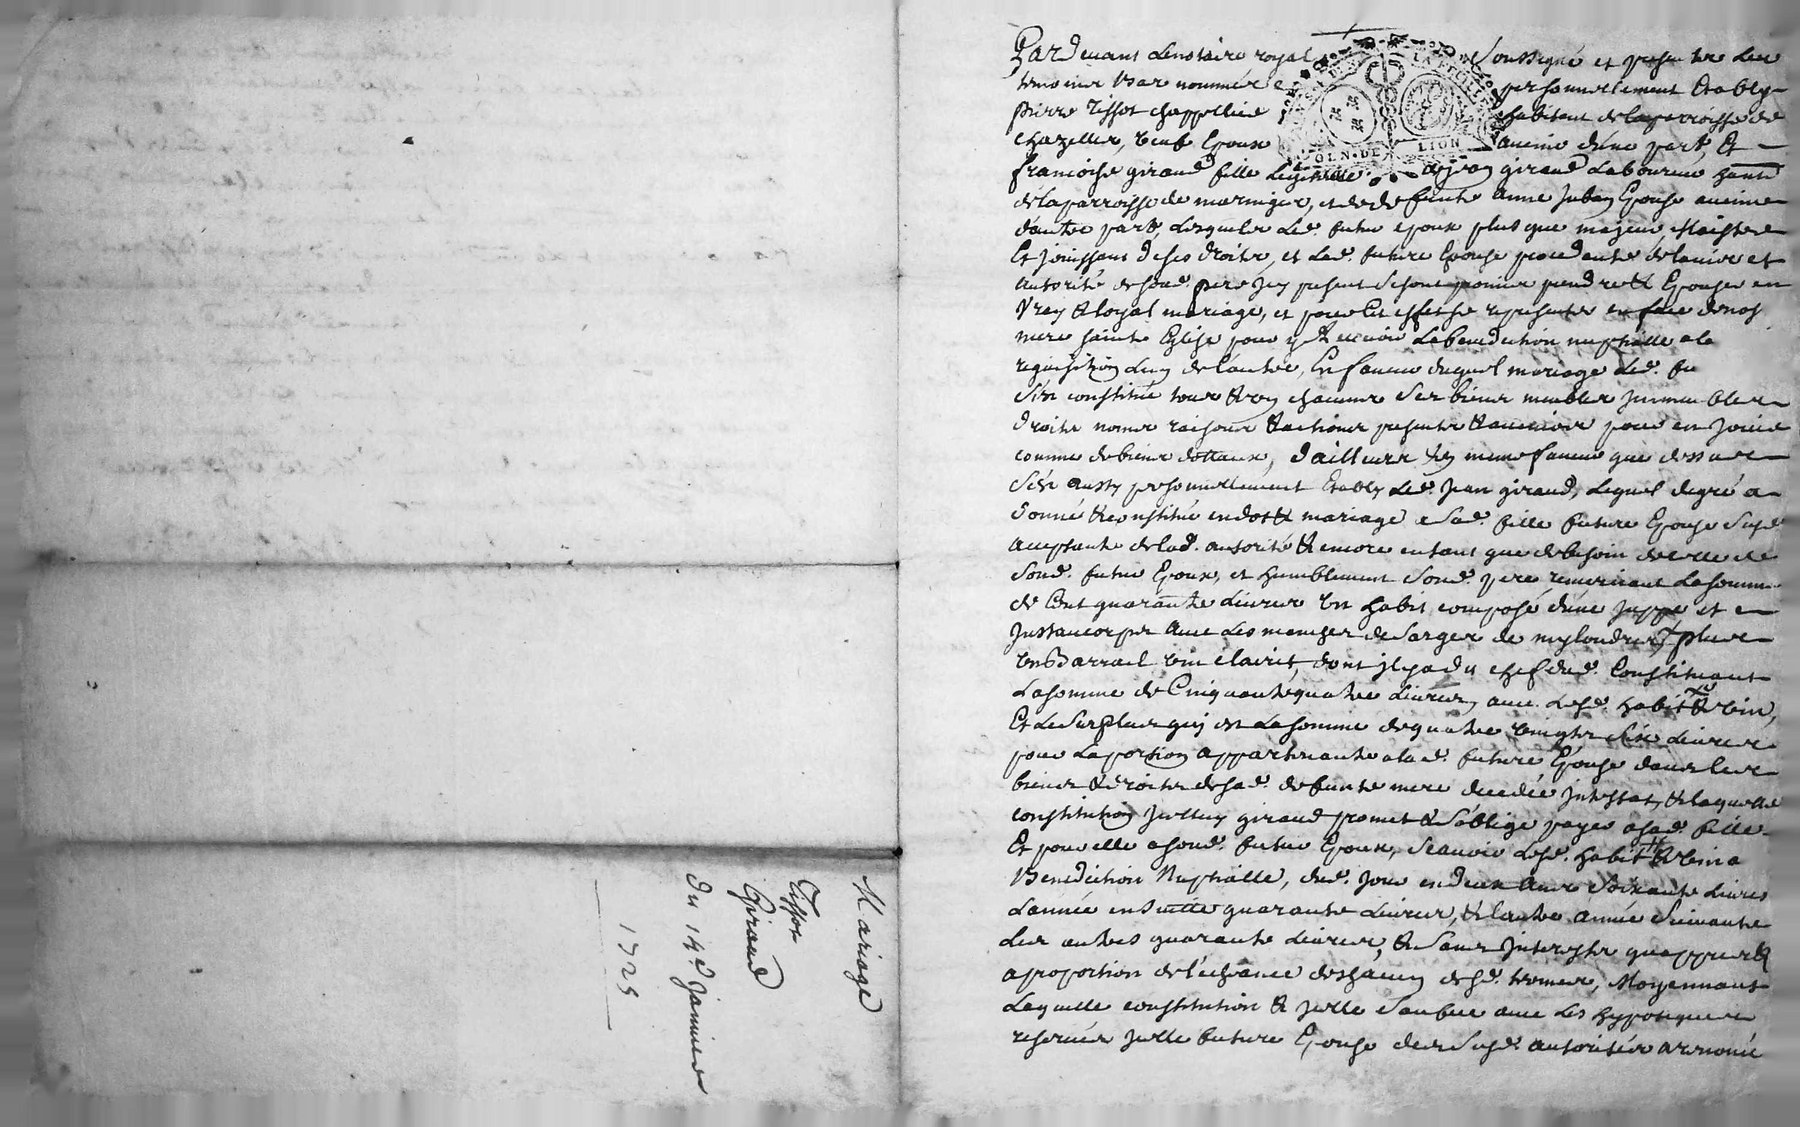 Mariage
Tissot
Giraud
du 14e Janvier
1725
Pardevant Lenotaire royal soussigné et presente les
temoins bas nommés personnellement Estably
pierre Tissot chappellier habitant delaparroisse de
chazelles, Epoux avenir d'une part, Et
francoise giraud fille Legitime de jean giraud Laboureur habitt
delaparroisse de maringes, et dedefunte Anne Epouse avenir
d'autre part, Lesquels Led. futur epoux plus que majeur Maistre
Et jouissant deses droits, et Lad. future Epouse procedante delavis et
autorité desond. pere Icy present sesont promis prendre & Epouser en
vray & loyal mariage, et pour cet effet se representer en face denos
mere sainte Eglise pour y Recevoir La benediction nuptialle ala
requisition Lun de lautre, En faveur duquel mariage Led. fu
s'est constitué tous & uns chacuns ses biens meubles immeubles
droits noms raisons & actions presents & avenir pour en jouir
comme debiens dottaux, d'ailleurs En meme faveur que dessus
s'est aussy personnellement Estably Led. Jean giraud, Lequel degré a
donné & constitué endot & mariage a Sad. fille future Epouse
acceptante delad. autorité & encore entant que debesoin decelle de
Sond. futur Epoux, et humblement Sond. pere remerciant Lasomme
de Cent quarante Livres un habit composé d'une juppe et
justaucorps avec Les manches de sarges de plus
vin clairet, dont il y a du chef dud. Constituant
Lasomme de Cinquante quatre Livres, avec Lesd. habit & vin,
Et Lesurplus quy est Lasomme dequatre vingts six Livres
pour Laportion appartenante alad. future Epouse dans les
biens & droits desad. defunte mere decedée intestat, & laquelle
constitution giraud promet & s'oblige payer asad. fille
Et pour elle asond. futur Epoux, scavoir Lesd. habit & vin a
Benediction Nuptialle, dud. jour en deux ans soixante Livres
Lannée ensuitte quarante Livres, & lautre année suivante
Les autres quarante Livres, & sans interests
aproportion de l'echeance dechacun desd. termes, Moyennant
Laquelle constitution & Icelle sauve avec Les hypoteques
reservées Icelle future Epouse des autorités a renoncé